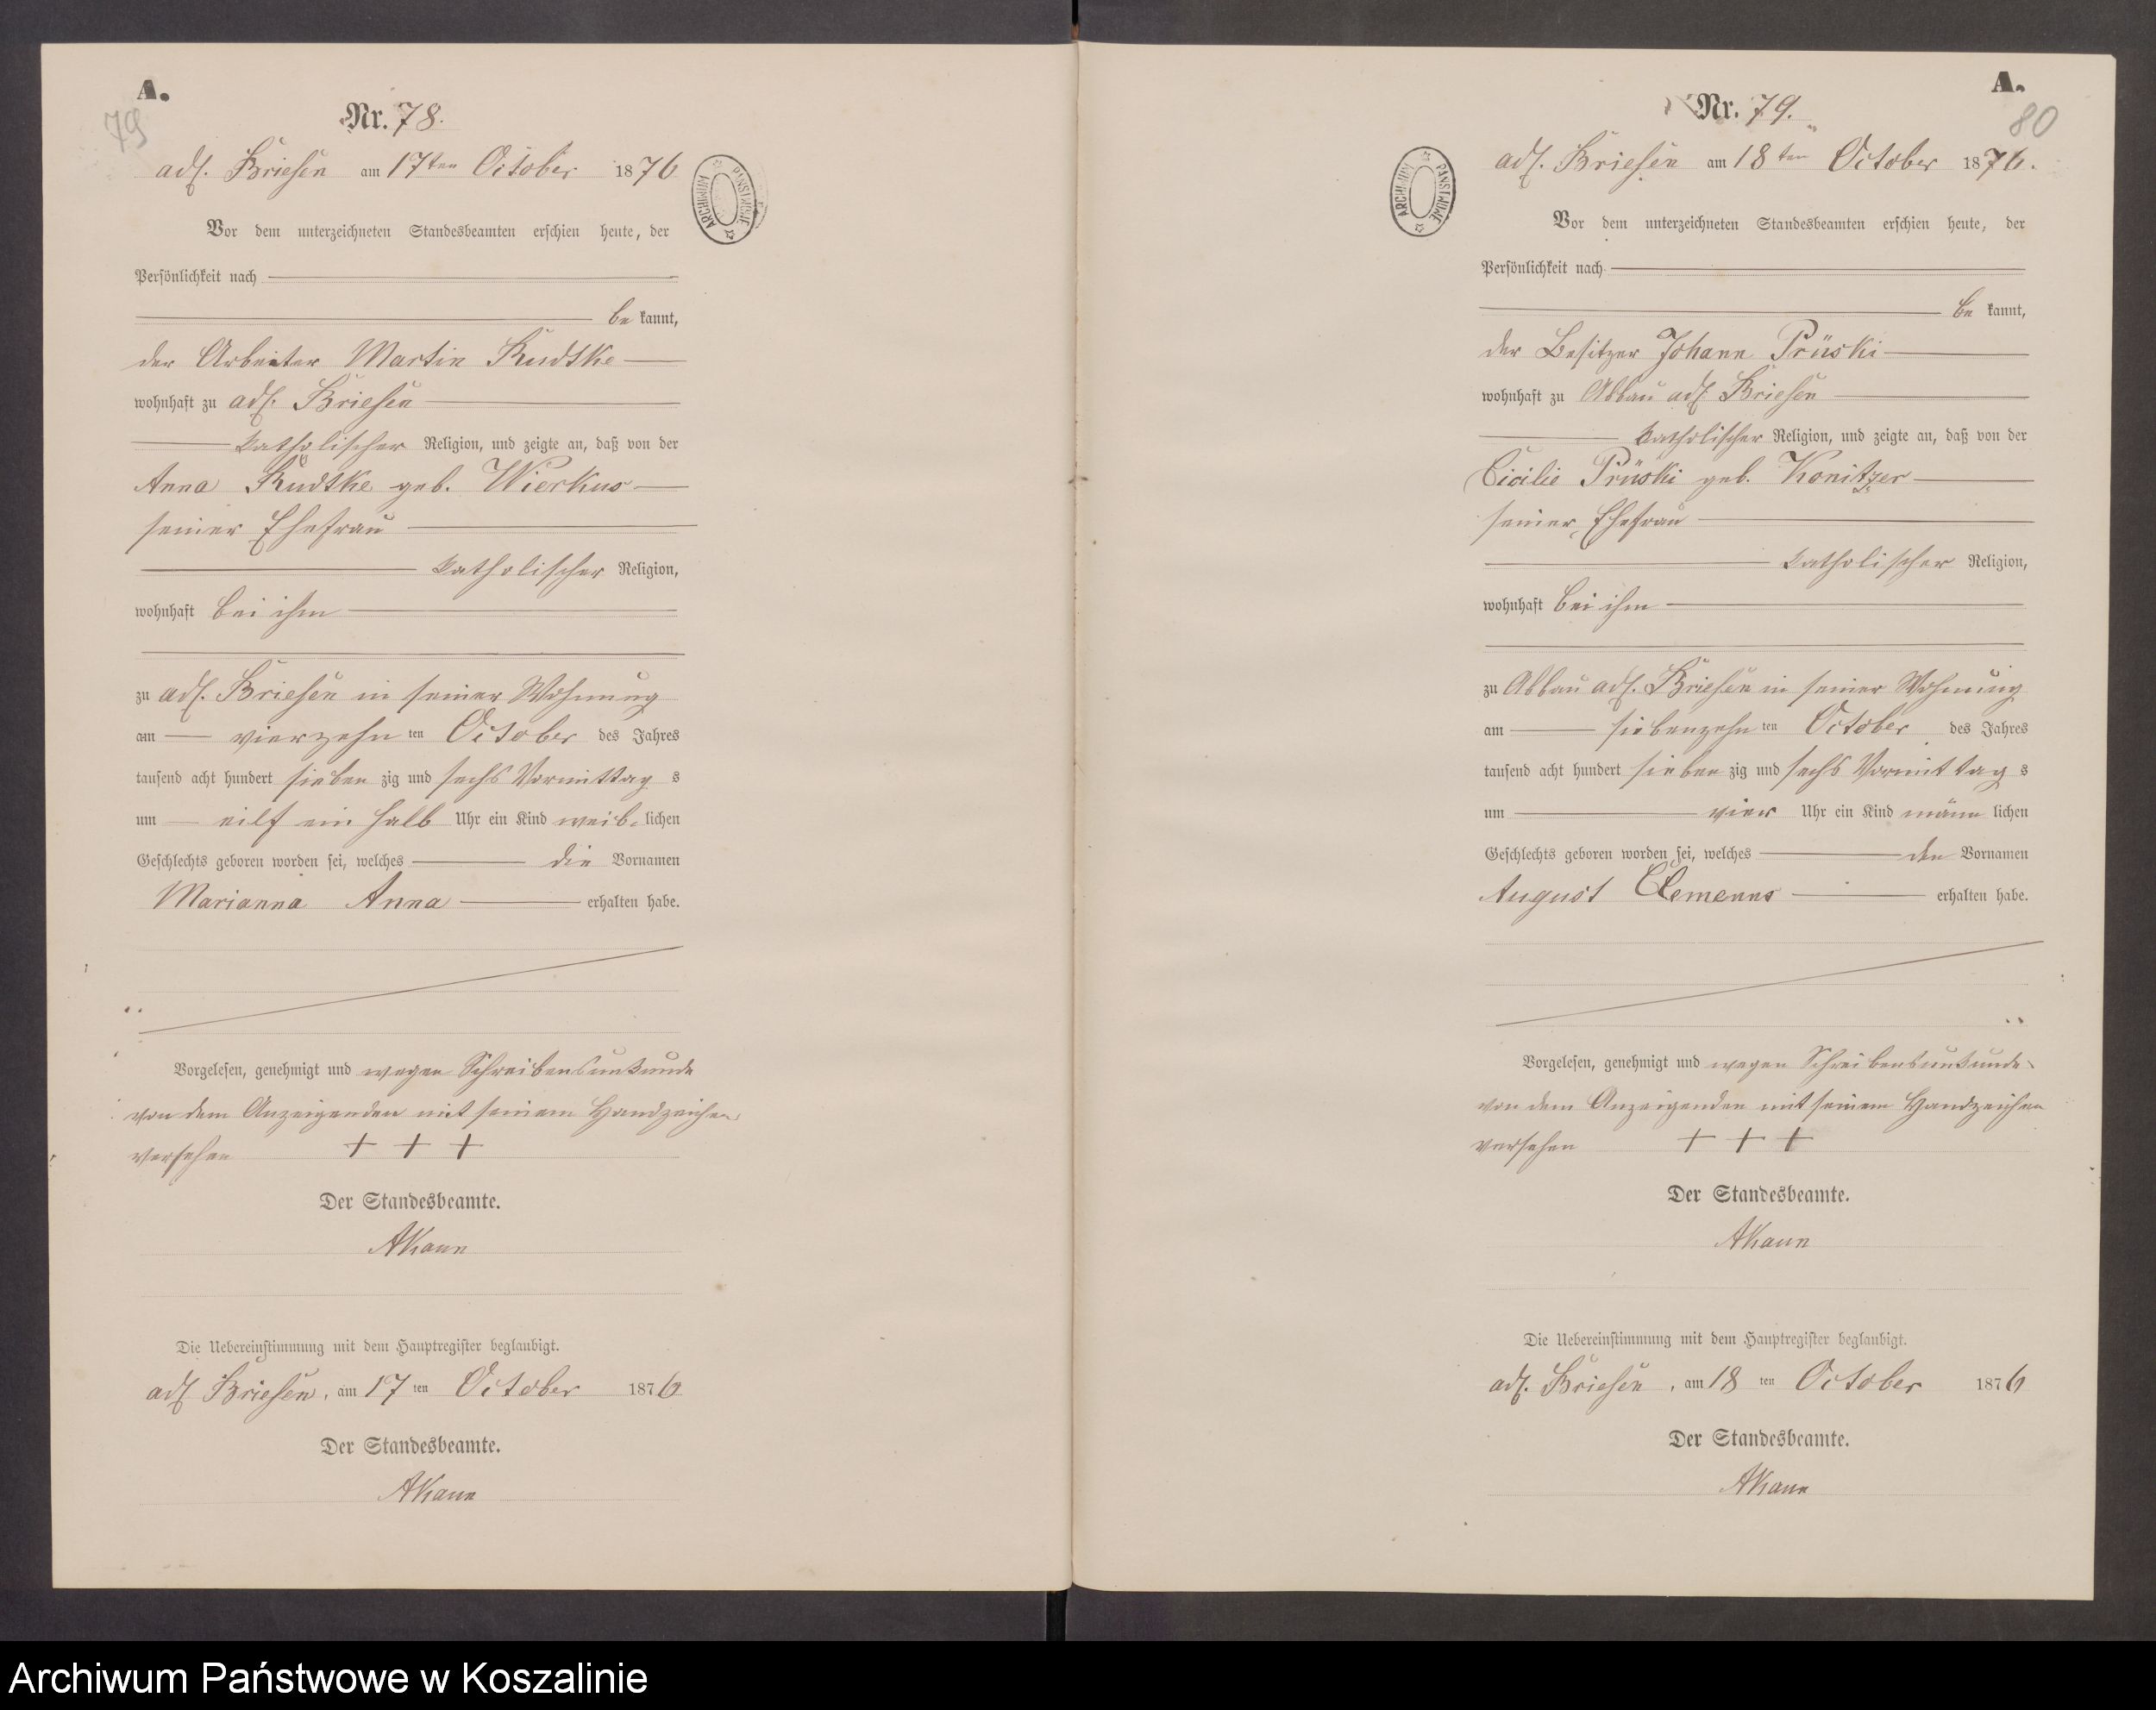 A.
79
Nr. 78.
adl. Briesen am 17ten October 1876
ARCHIWUM PAŃSTWOWE
Vor dem unterzeichneten Standesbeamten erschien heute, der
Persönlichkeit nach
be kannt,
der Arbeiter Martin Rudtke
wohnhaft zu adl. Briesen
katholischer Religion, und zeigte an, daß von der
Anna Rudtke geb. Wierkus
seiner Ehefrau
katholischer Religion,
wohnhaft bei ihm
zu adl. Briesen in seiner Wohnung
am vierzehn ten October des Jahres
tausend acht hundert sieben zig und sechs Vormittag s
um eilf ein halb Uhr ein Kind weib lichen
Geschlechts geboren worden sei, welches die Vornamen
Marianna Anna erhalten habe.
Vorgelesen, genehmigt und wegen Schreibensunkunde
von dem Anzeigenden mit seinem Handzeichen
versehen + + +
Der Standesbeamte.
AKaun
Die Uebereinstimmung mit dem Hauptregister beglaubigt.
adl. Briesen, am 17 ten October 1876
Der Standesbeamte.
AKaun
A.
80
Nr. 79.
adl. Briesen am 18ten October 1876.
ARCHIWUM PAŃSTWOWE
Vor dem unterzeichneten Standesbeamten erschien heute, der
Persönlichkeit nach
be kannt,
der Besitzer Johann Prüski
wohnhaft zu Abbau adl. Briesen
katholischer Religion, und zeigte an, daß von der
Cicilie Prüski geb. Konitzer
seiner Ehefrau
katholischer Religion,
wohnhaft bei ihm
zu Abbau adl. Briesen in seiner Wohnung
am siebenzehn ten October des Jahres
tausend acht hundert sieben zig und sechs Vormittag s
um vier Uhr ein Kind männ lichen
Geschlechts geboren worden sei, welches den Vornamen
August Clemenns erhalten habe.
Vorgelesen, genehmigt und wegen Schreibensunkunde
von dem Anzeigenden mit seinem Handzeichen
versehen + + +
Der Standesbeamte.
AKaun
Die Uebereinstimmung mit dem Hauptregister beglaubigt.
adl. Briesen, am 18 ten October 1876
Der Standesbeamte.
AKaun
Archiwum Państwowe w Koszalinie